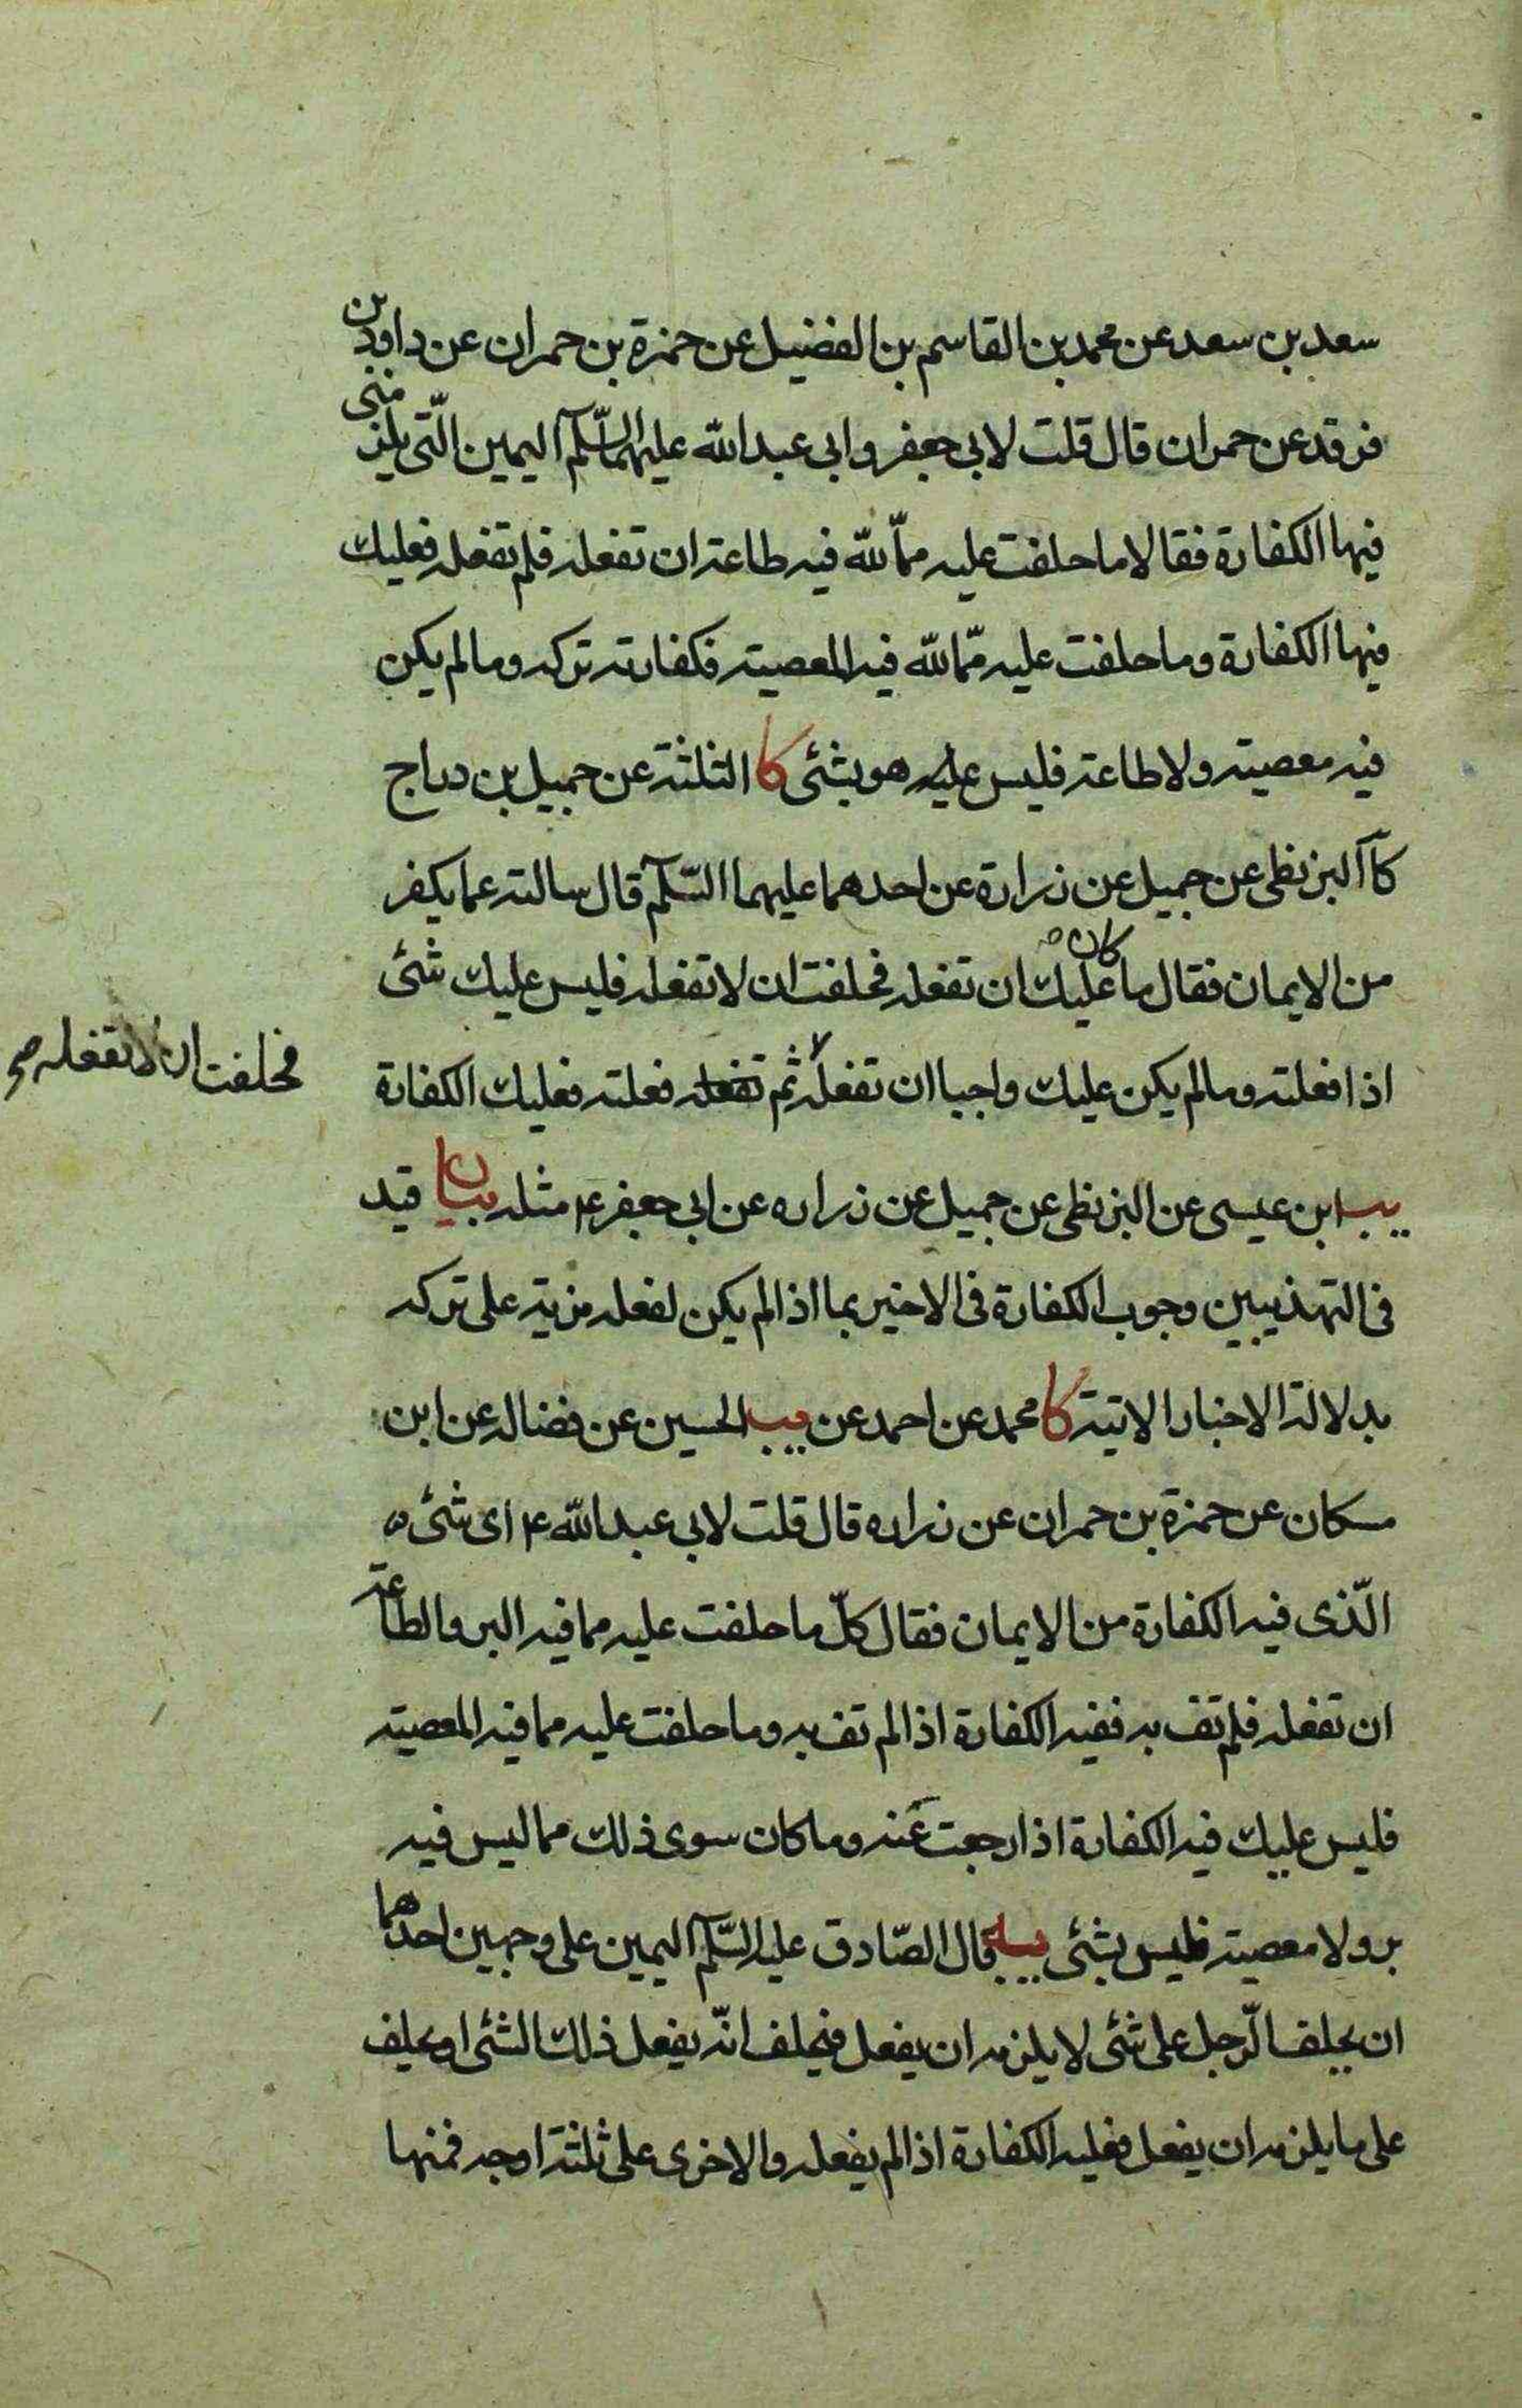 سعد بن سعد عن محمد بن القاسم بن الفضيل عن حمزة بن حمران عن داود بن
فرقد عن حمران قال قلت لابى جعفر وابى عبد الله عليهما السّلم اليمين الّتى يلزمنى
فيها الكفارة فقالا ما حلفت عليه ممّا لله فيه طاعة ان تفعله فلم تفعله فعليك
فيها الكفارة وما حلفت عليه ممّا لله فيه المعصية فكفارته تركه وما لم يكن
فيه معصية ولا طاعة فليس عليه هو بشئى كا الثلثة عن جميل بن دراج
كا البزنطى عن جميل عن زرارة عن احدهما عليهما السّلم قال سالته عما يكفر
من الايمان فقال ما كان عليك ان تفعله فحلفت ان لا تفعله فليس عليك شئى
اذا فعلته وما لم يكن عليك واجبا ان تفعله ثم تفعله فعلته فعليك الكفارة
فحلفت ان لا تفعله صح
يب ابن عيسى عن البزنطى عن جميل عن زراره عن ابى جعفر ع مثله بيان قيد
فى التهذيبين وجوب الكفارة فى الاخير بما اذا لم يكن لفعله مزية على تركه
بدلالة الاخبار الاتية كا محمد عن احمد عن يب الحسين عن فضاله عن ابن
مسكان عن حمزة بن حمران عن زراره قال قلت لابى عبد الله ع اى شئى
الّذى فيه الكفارة من الايمان فقال كلّ ما حلفت عليه مما فيه البر والطاعة
ان تفعله فلم تف به ففيه الكفارة اذا لم تف به وما حلفت عليه مما فيه المعصية
فليس عليك فيه الكفارة اذا رجعت عنه وما كان سوى ذلك مما ليس فيه
بر ولا معصية فليس بشئى يه قال الصّادق عليه السّلم اليمين على وجهين احدهما
ان يحلف الرّجل على شئى لا يلزمه ان يفعل فيحلف انّه يفعل ذلك الشئى او يحلف
على ما يلزمه ان يفعل فعليه الكفارة اذا لم يفعله والاخرى على ثلثة اوجه فمنها